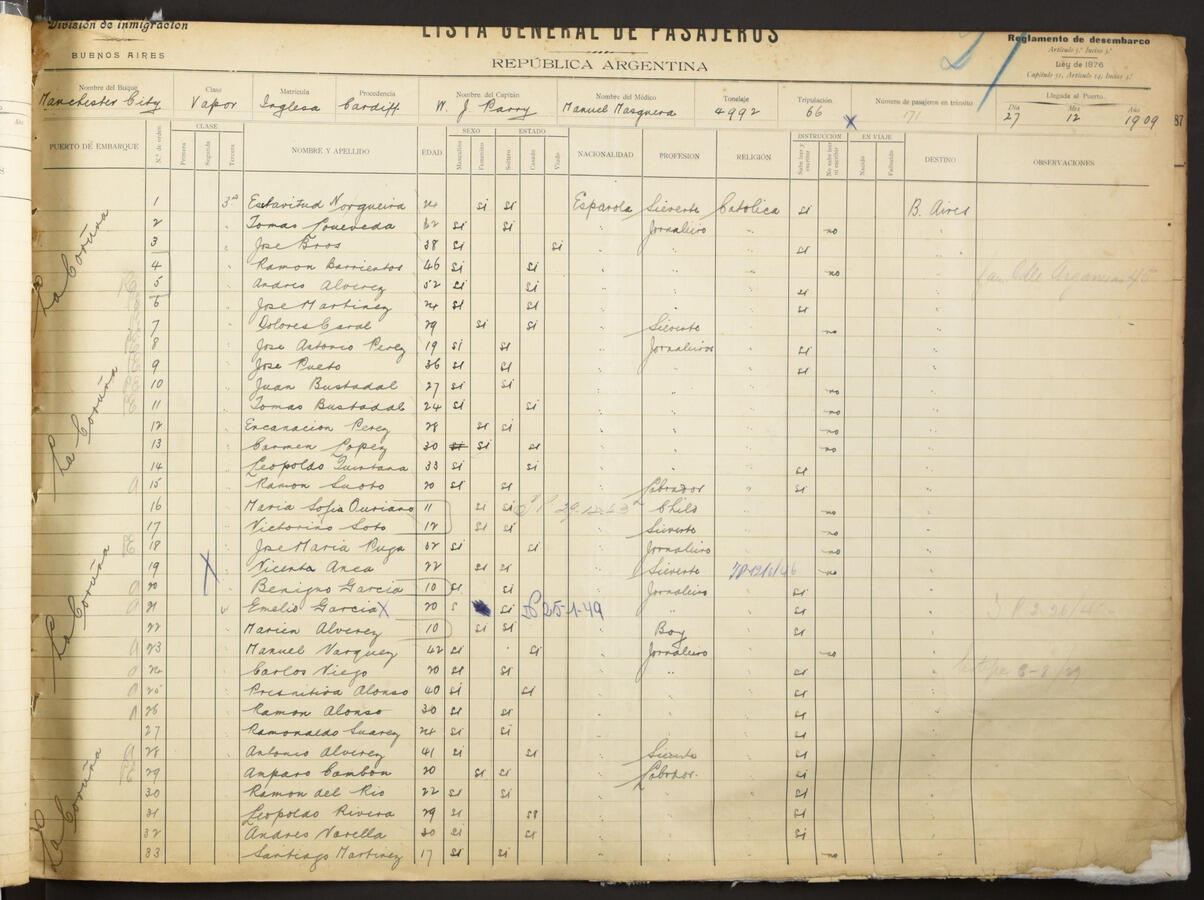 División de inmigración
BUENOS AIRES
LISTA GENERAL DE PASAJEROS
REPÚBLICA ARGENTINA
Reglamento de desembarco
Artículo 5º Inciso 3º
Ley de 1876
Capítulo 51, Artículo 14, Inciso 3º
Nombre del Buque Clase Matrícula Procedencia Nombre del Capitán Nombre del Médico Tonelaje Tripulación Número de pasajeros en tránsito Llegada al Puerto
Día Mes Año
Manchester City Vapor Inglesa Cardiff W. J. Parry Manuel Masquera 4992 66 171 27 12 1909
87
PUERTO DE EMBARQUE N.º de orden CLASE Primera Segunda Tercera NOMBRE Y APELLIDO EDAD SEXO Masculino Femenino ESTADO Soltero Casado Viudo NACIONALIDAD PROFESION RELIGIÓN INSTRUCCION Sabe leer y escribir No sabe leer ni escribir EN VIAJE Nacido Fallecido DESTINO OBSERVACIONES
La Coruña
1 3ª Norgueira 24 si si Española Sievente Catolica si B. Aires
2 Tomas 62 si si Jornaleiro no
3 Jose Bros 38 si si si
4 Ramon Barrientos 46 si si no
5 Andres Alverez 52 si si si
6 Jose Martinez 24 si si si
7 Dolores Caral 29 si si Sievente no
8 Jose Antonio Perez 19 si si Jornaleiros si
9 Jose Pueto 36 si si si
La Coruña
10 Juan Bustadal 27 si si no
11 Tomas Bustadal 24 si si no
12 Encanacion Perez 28 si si no
13 Carmen Lopez 30 si si si no
14 Leopoldo Quintana 33 si si si
15 Ramon Suoto 20 si si Labrador si
16 Maria Sofia Ouriano 11 si si Child no
17 Victorino Soto 12 si si Sievente no
18 Jose Maria Puga 62 si si Jornaleiro no
19 Vicenta Anca 22 si si Sievente no
La Coruña
20 Benigno Garcia 10 si si Jornaleiro si
21 Emelio Garcia X 20 s si 25-1-49 si
22 Marien Alverez 10 si si Boy si
23 Manuel Varquez 42 si si Jornaleiro no
24 Carlos Viego 20 si si si
25 Presnitiva Alonso 40 si si si
26 Ramon Alonso 30 si si si
27 Ramonaldo Suarez 24 si si si
28 Antonio Alverez 41 si si Sievente si
29 Amparo Cambon 20 si si Labrador si
La Coruña
30 Ramon del Rio 22 si si si
31 Leopoldo Rivera 29 si si si
32 Andres Varella 30 si si si
33 Santiago Martinez 17 si si no